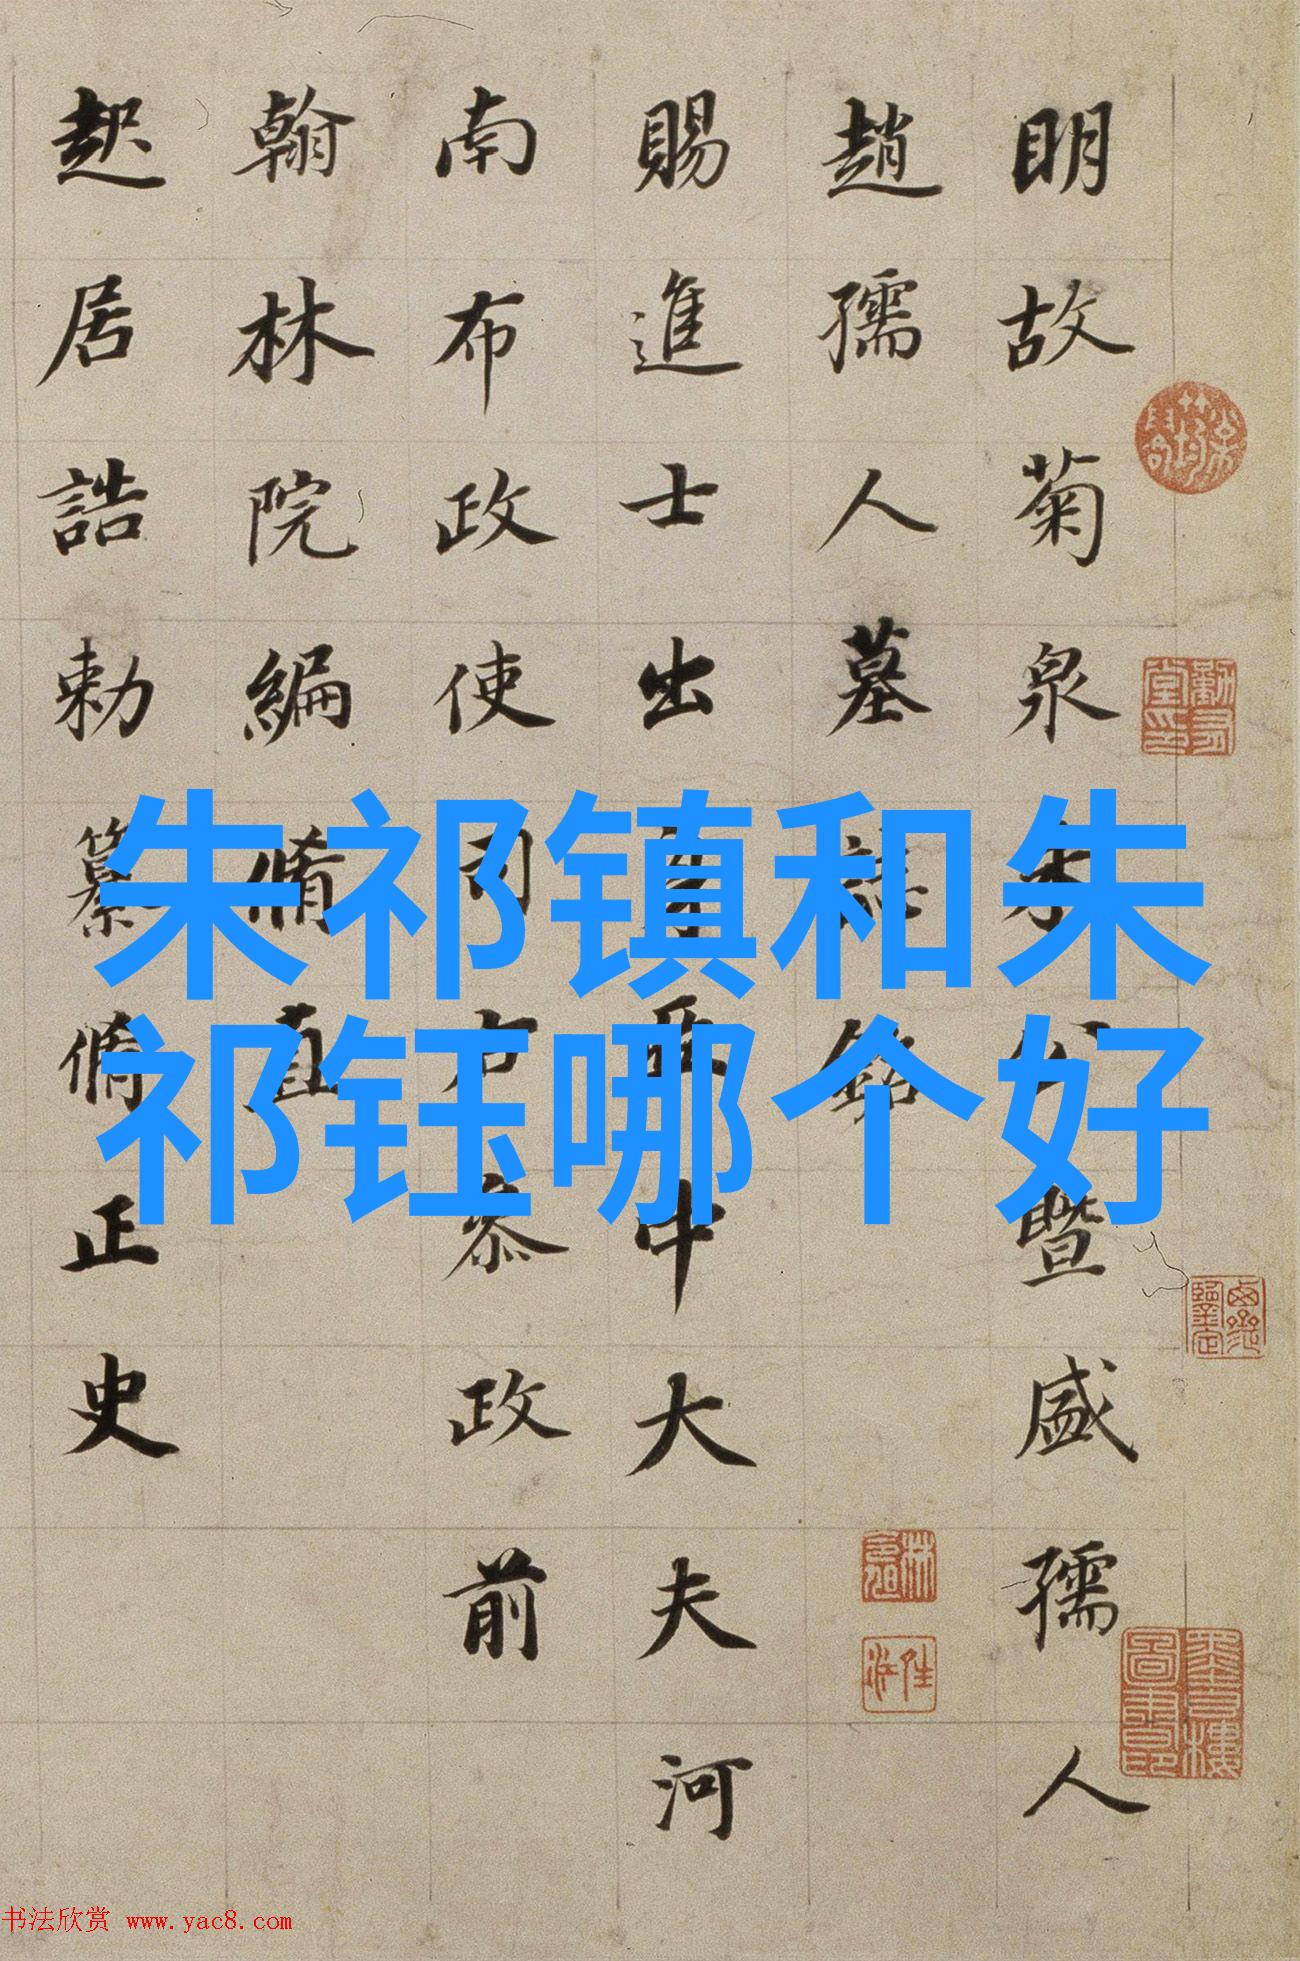 朱祁镇和朱
祁钰哪个好
明故菊泉公暨盛孺人
趙孺人墓誌銘
賜進士出身亞中大夫河
南布政使司右叅政前
翰林院編脩直
起居誥勅纂脩正史
书法欣赏 www.yac8.com